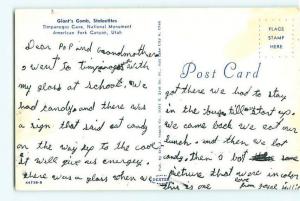 Giant's Comb, Stalactites
Timpanogos Cave, National Monument
American Fork Canyon, Utah
PLACE
STAMP
HERE
Post Card
Dear Pop and Grandmother
I went to Timpanogos with
my glass at school. We
had candy and there was
a sign that said eat candy
on the way up to the cave
it will give us energey.
there was a glass when we
got there we had to stay
in the bus till start up.
We came back we eat our
lunch. and then we bot
candy, then I bot some
picture that were in color
this is one
love
from
44738-B
DEXTER